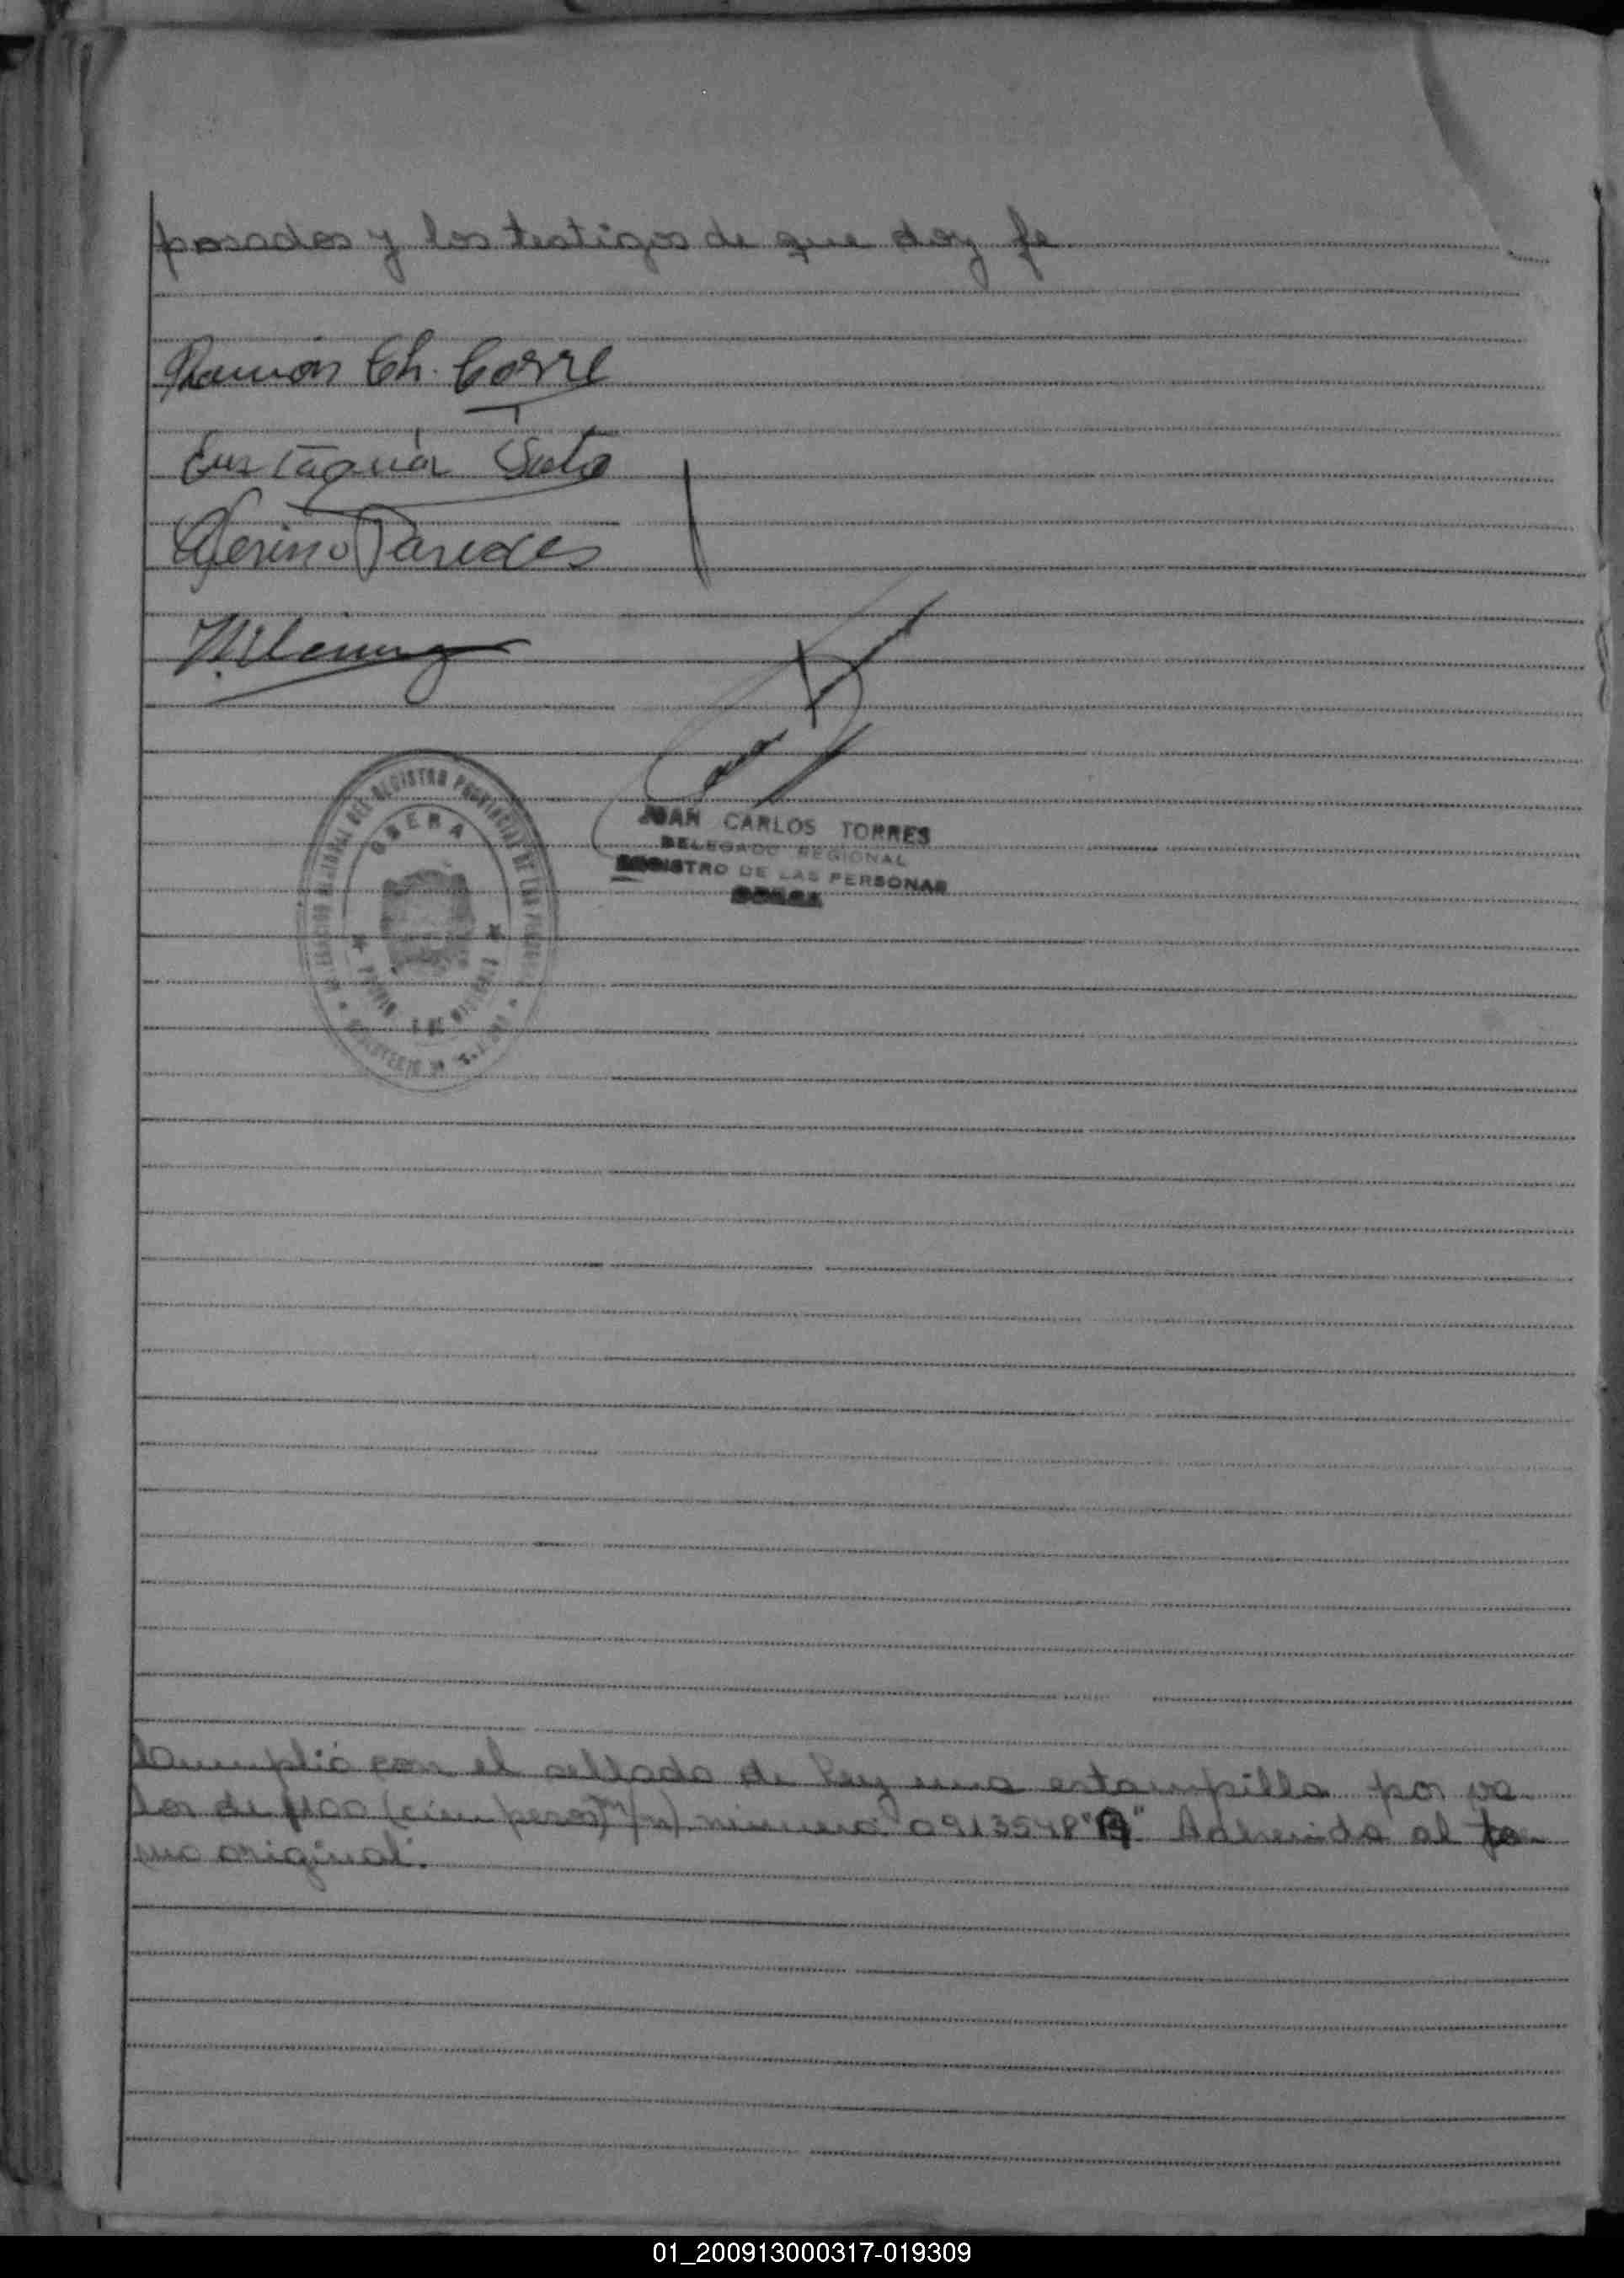 posados y los testigos de que doy fe
Ramón Ch.
Soto
Paredes
DEL REGISTRO PROVINCIAL DE LAS
OBERA
JUAN CARLOS TORRES
DELEGADO REGIONAL
REGISTRO DE LAS PERSONAS
OBERA
Cumplió con el sellado de ley una estampilla por va-
lor de $100 (cien pesos m/n) número 0913548 "A" Adherida al to-
mo original.
01_200913000317-019309